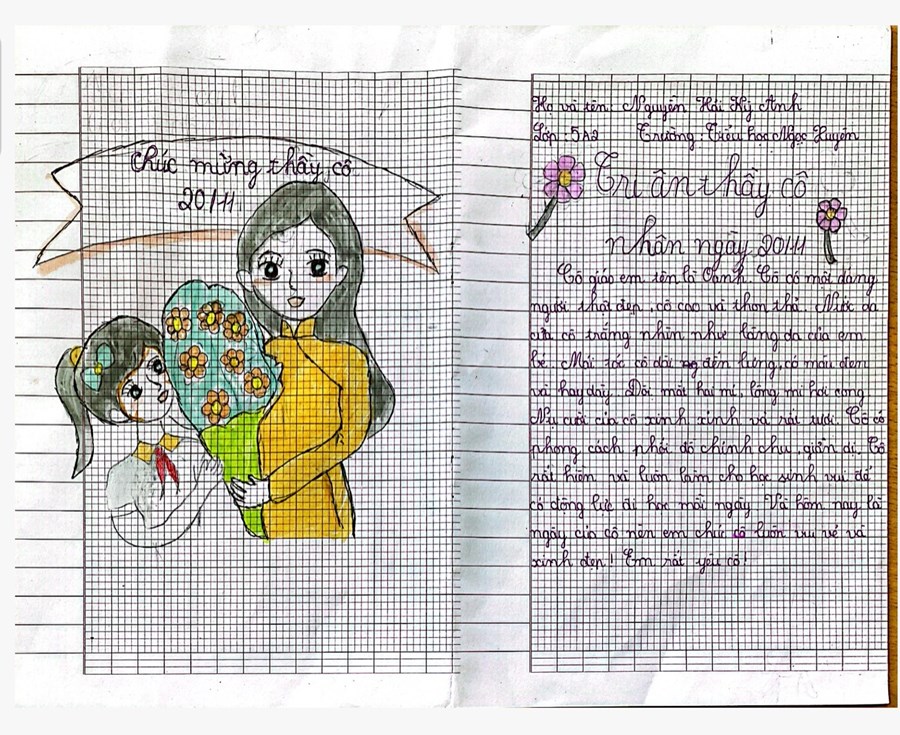 Chúc mừng thầy cô
20/11
Họ và tên: Nguyễn Hải Kỳ Anh
Lớp: 5A2 Trường: Tiểu học Ngọc Xuyên
Tri ân thầy cô
nhân ngày 20/11
Cô giáo em tên là Oanh. Cô có một dáng
người thật đẹp, cô cao và thon thả. Nước da
của cô trắng nhìn như làng da của em
bé. Mái tóc cô dài đến lưng, có màu đen
và hay dây. Đôi mắt hai mí, lông mi hơi cong
Nụ cười của cô xinh xinh và rất tươi. Cô có
phong cách phối đồ chỉnh chu, giản dị. Cô
rất hiền và luôn làm cho học sinh vui để
có động lực đi học mỗi ngày. Và hôm nay là
ngày của cô nên em chúc cô luôn vui vẻ và
xinh đẹp! Em rất yêu cô!